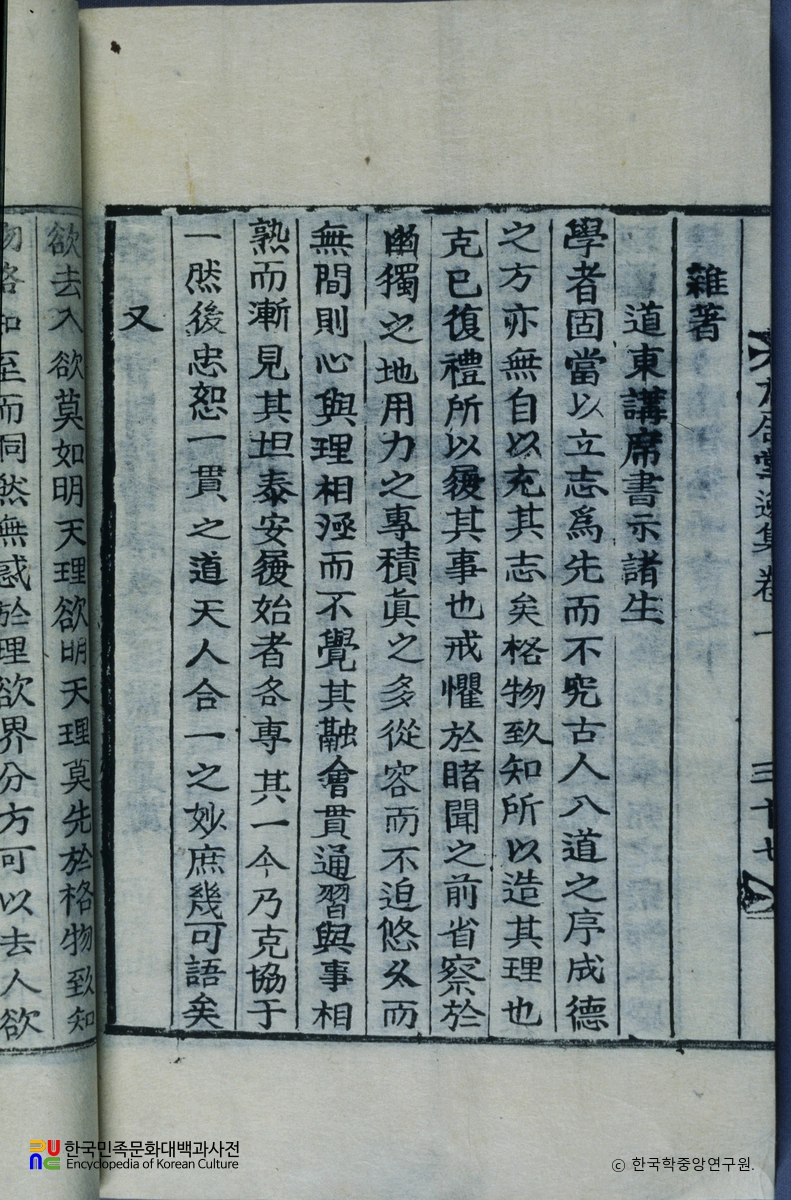 雜著
道東講席書示諸生
學者固當以立志爲先而不究古人入道之序成德
之方亦無自以充其志矣格物致知所以造其理也
克己復禮所以履其事也戒懼於睹聞之前省察於
幽獨之地用力之專積眞之多從容而不迫悠久而
無間則心與理相涵而不覺其融會貫通習與事相
熟而漸見其坦泰安履始者各專其一今乃克協于
一然後忠恕一貫之道天人合一之妙庶幾可語矣
又
欲去人欲莫如明天理欲明天理莫先於格物致知
物格知至而洞然無惑於理欲界分方可以去人欲
居堂逸集卷一 三十七
한국민족문화대백과사전
Encyclopedia of Korean Culture
ⓒ 한국학중앙연구원.